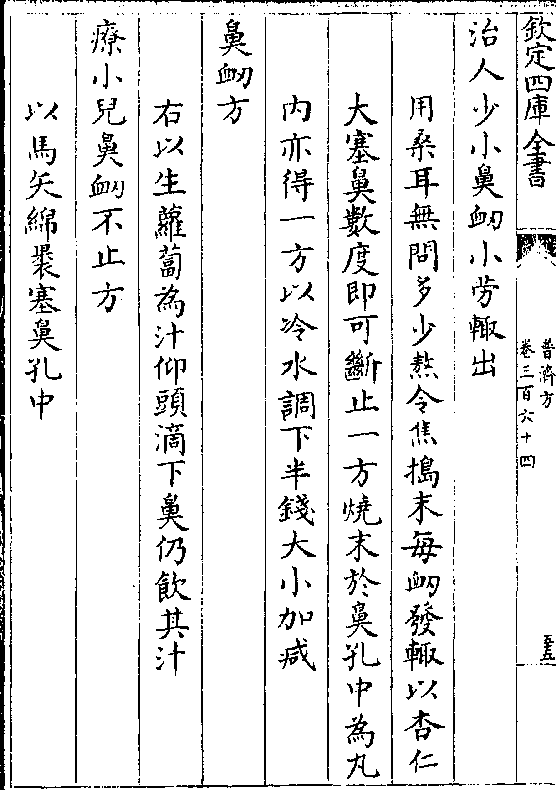 欽定四庫全書
普濟方
卷三百六十四
五五
治人少小鼻衂小勞輙出
用桑耳無問多少熬令焦搗末每衂發輙以杏仁
大塞鼻數度即可斷止一方燒末於鼻孔中為丸
内亦得一方以冷水調下半錢大小加减
鼻衂方
右以生蘿蔔為汁仰頭滴下鼻仍飲其汁
療小兒鼻衂不止方
以馬矢綿褁塞鼻孔中